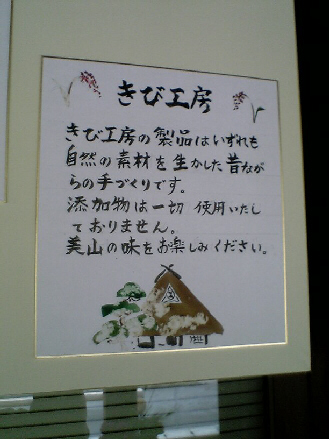 きび工房
きび工房の製品はいずれも
自然の素材を生かした昔なが
らの手づくりです。
添加物は一切 使用いたし
ておりません。
美山の味をお楽しみください。